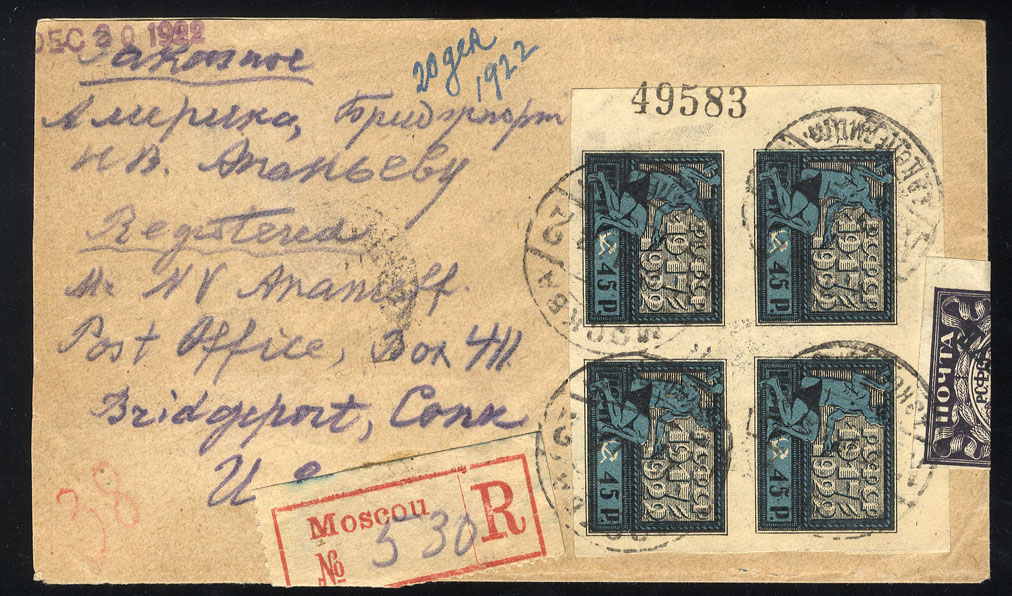 DEC 20 1922
Заказное
20 дек
1922
Америка, Бриджпорт
Н.В. Ананьеву
Registered
Mr NV Ananieff.
Post Office, Box 411
Bridgeport, Conn
U
Moscou
R
№ 530
38
49583
РСФСР
1917
1922
45 Р.
РСФСР
1917
1922
45 Р.
РСФСР
1917
1922
45 Р.
РСФСР
1917
1922
45 Р.
МОСКВА
ПОЧТА
РСФСР